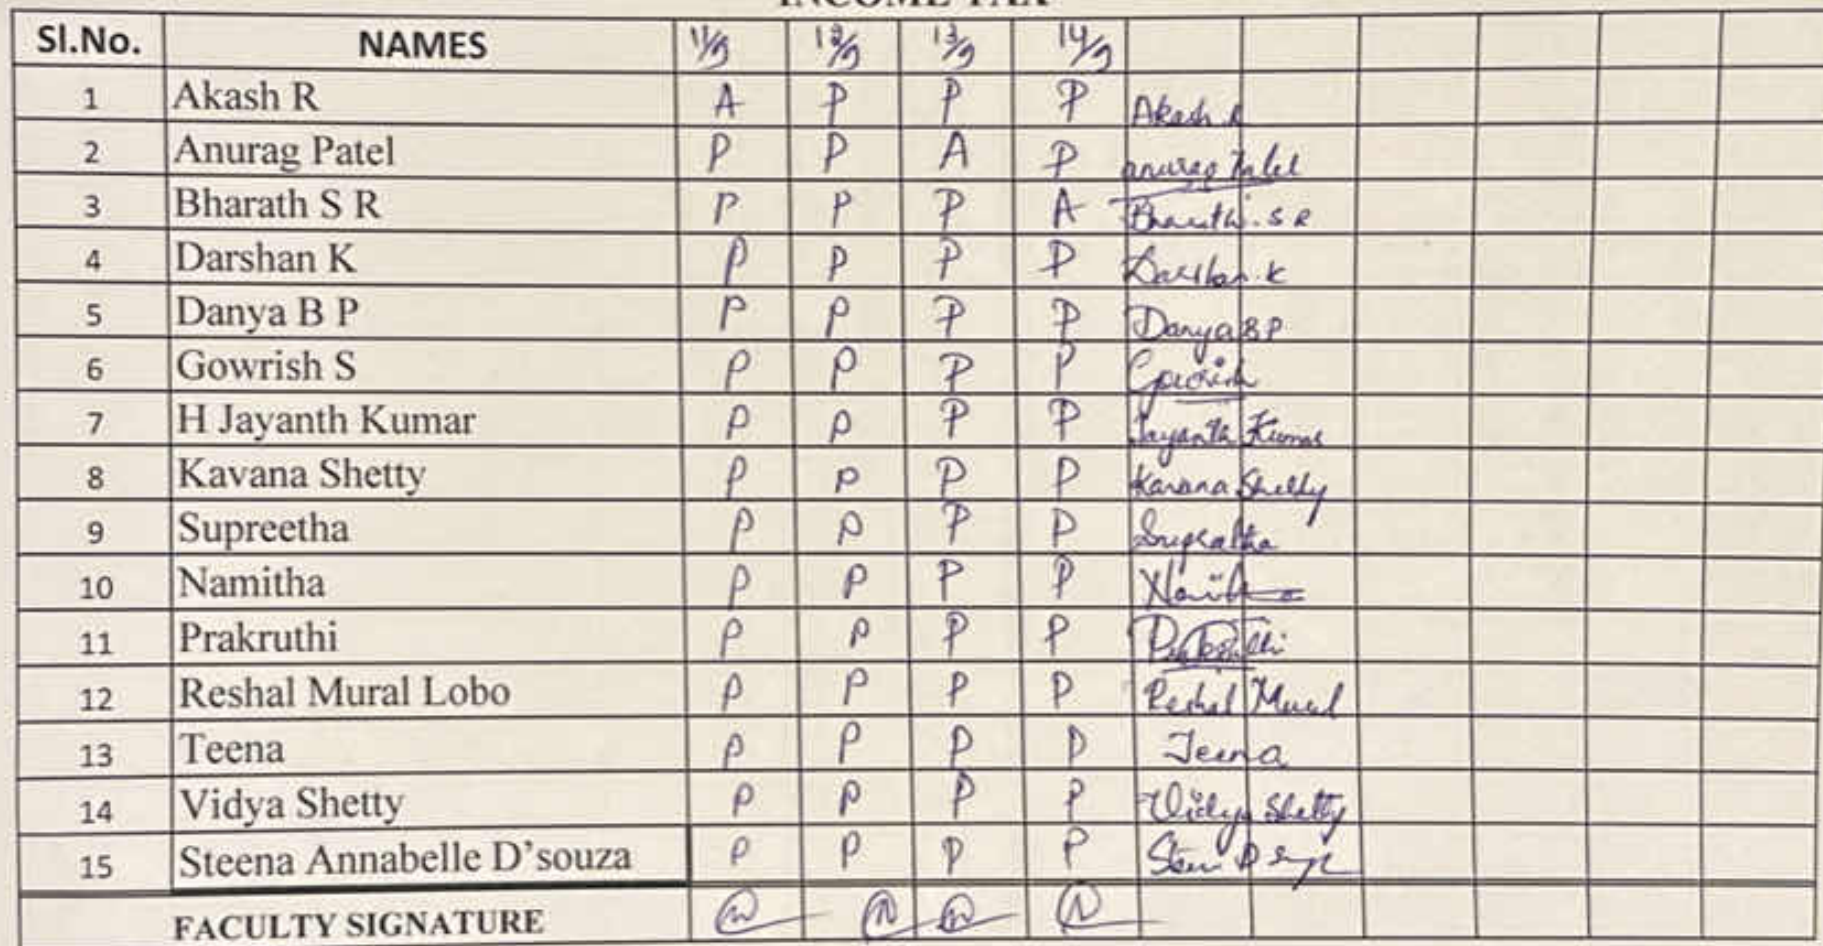 INCOME TAX
Sl.No. NAMES 11/9 12/9 13/9 14/9
1 Akash R A P P P Akash R
2 Anurag Patel P P A P anurag Patel
3 Bharath S R P P P A Bharath. S R
4 Darshan K P P P P Darshan. K
5 Danya B P P P P P Danya B P
6 Gowrish S P P P P Gowrish
7 H Jayanth Kumar P P P P Jayanth Kumar
8 Kavana Shetty P P P P Kavana Shetty
9 Supreetha P P P P
10 Namitha P P P P
11 Prakruthi P P P P Prakruthi
12 Reshal Mural Lobo P P P P Reshal Mural
13 Teena P P P P Teena
14 Vidya Shetty P P P P Vidya Shetty
15 Steena Annabelle D'souza P P P P
FACULTY SIGNATURE